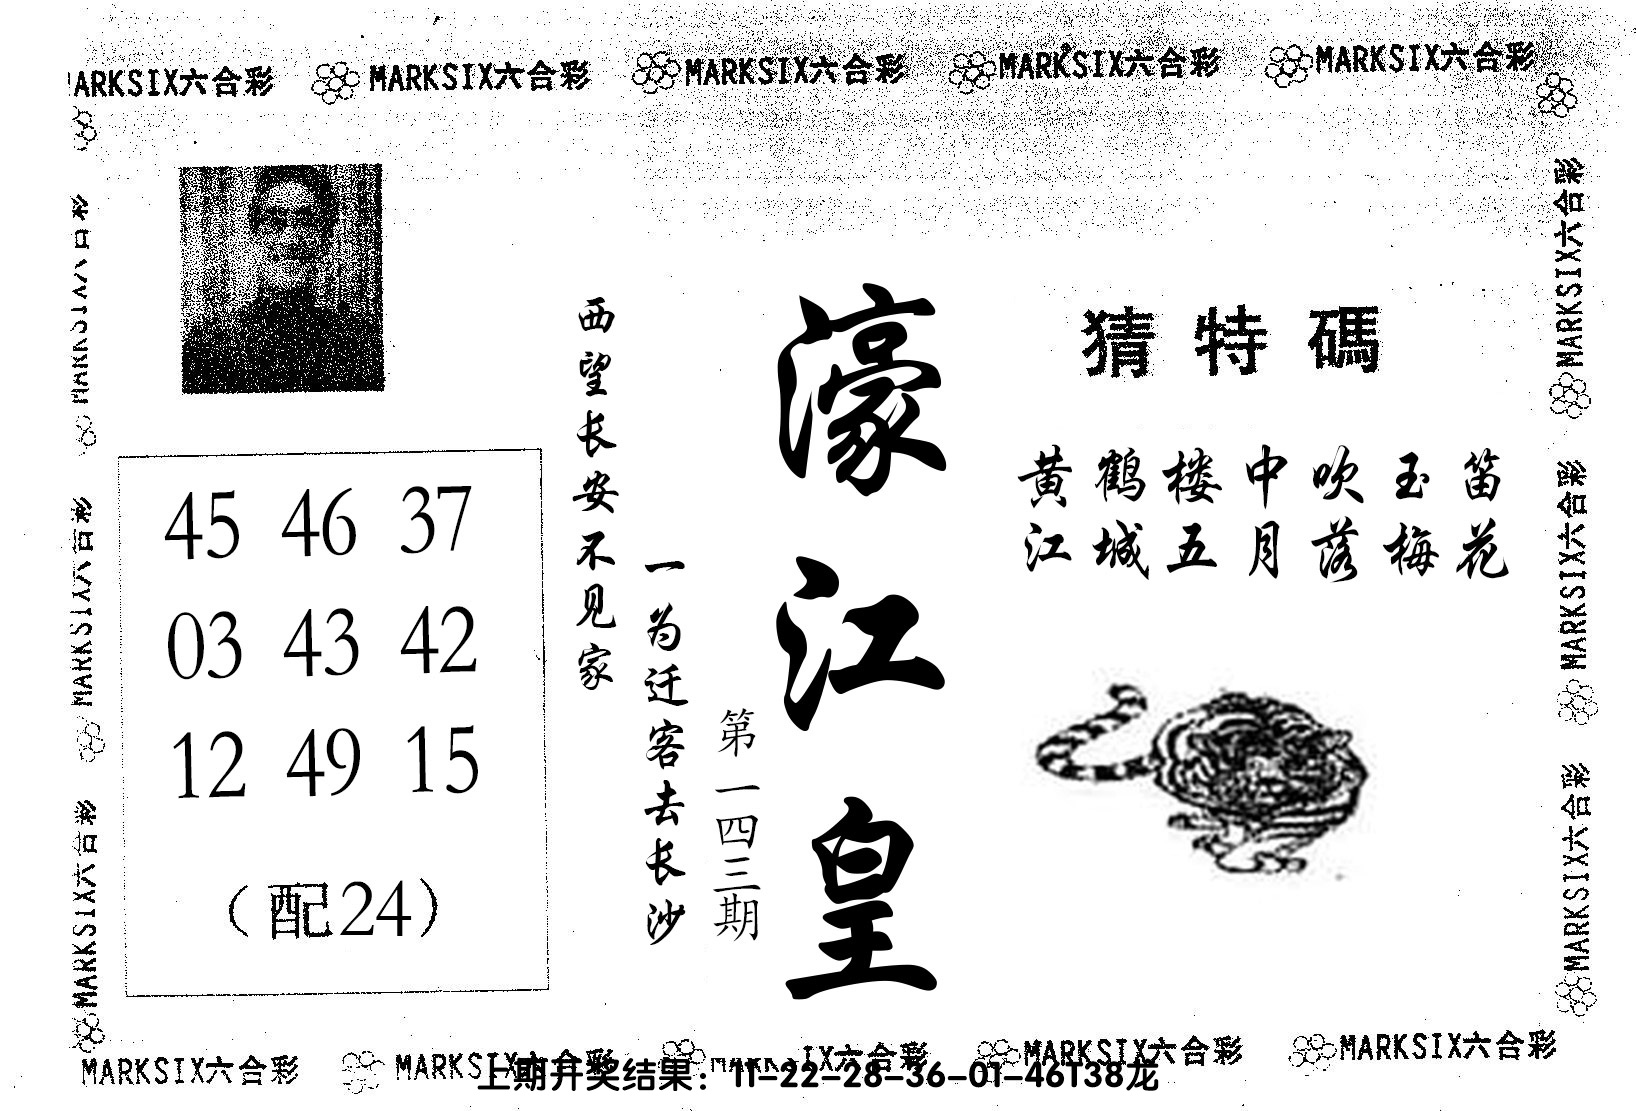 MARKSIX六合彩 MARKSIX六合彩 MARKSIX六合彩 MARKSIX六合彩 MARKSIX六合彩
MARKSIX六合彩
MARKSIX六合彩
MARKSIX六合彩
45 46 37
03 43 42
12 49 15
(配24)
西望长安不见家
一为迁客去长沙
第一四三期
濠江皇
猜特碼
黄鹤楼中吹玉笛
江城五月落梅花
MARKSIX六合彩
MARKSIX六合彩
MARKSIX六合彩
MARKSIX六合彩 MARKSIX六合彩 IX六合彩 MARKSIX六合彩 MARKSIX六合彩
上期开奖结果：11-22-28-36-01-46T38龙